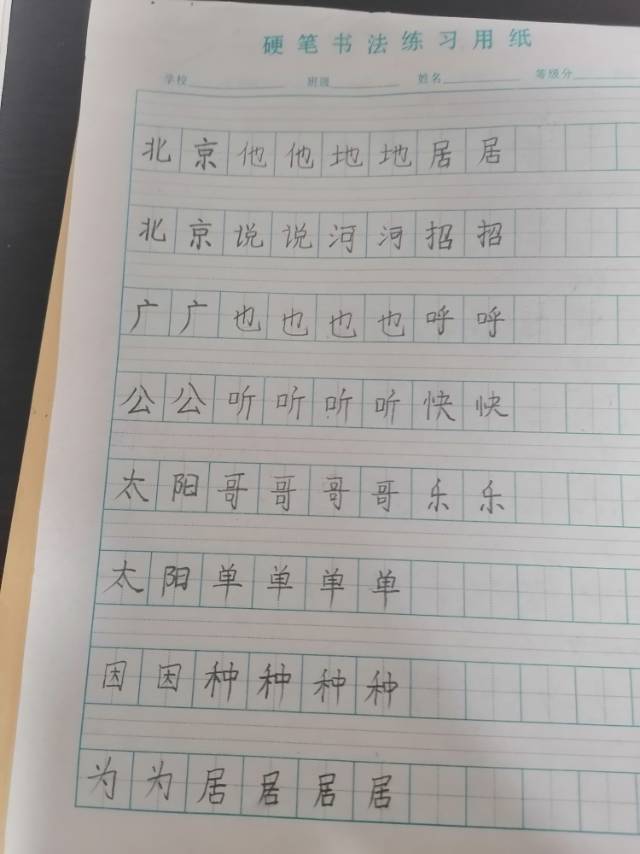 硬笔书法练习用纸
学校 班级 姓名 等级分
北京他他地地居居
北京说说河河招招
广广也也也也呼呼
公公听听听听快快
太阳哥哥哥哥乐乐
太阳单单单单
因因种种种种
为为居居居居